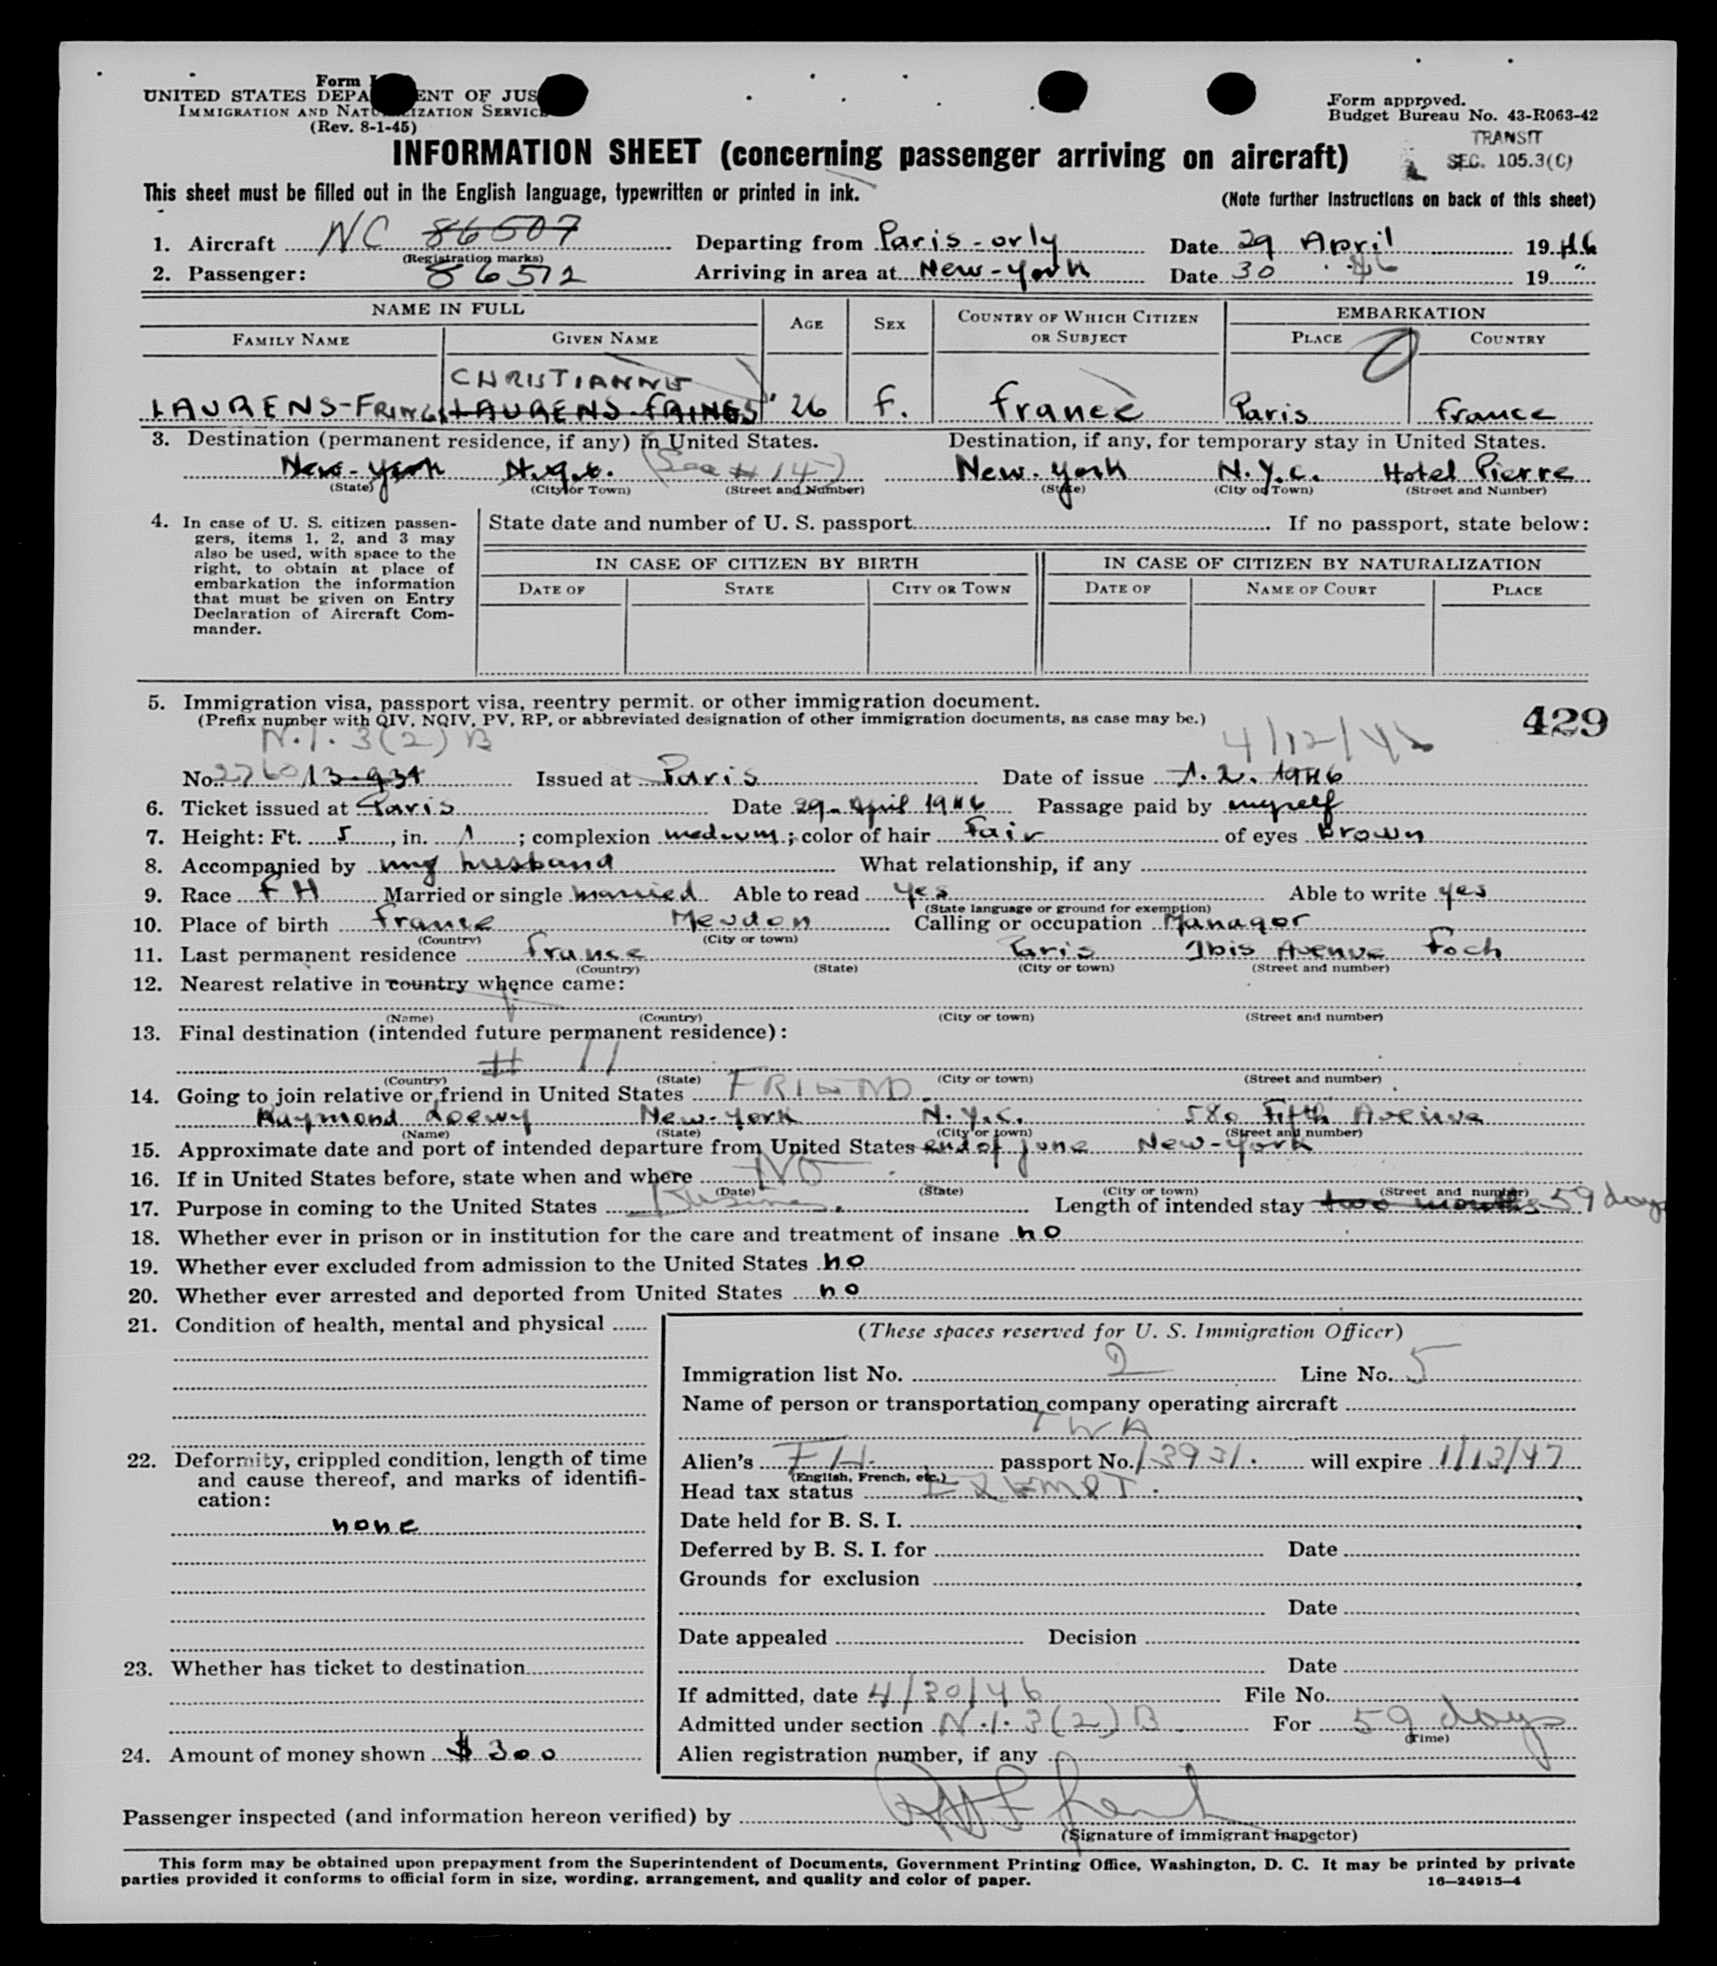 Form
UNITED STATES DEPA ENT OF JUS
IMMIGRATION AND NATU IZATION SERVICE
(Rev. 8-1-45)
Form approved.
Budget Bureau No. 43-R063-42
TRANSIT
SEC. 105.3(C)
INFORMATION SHEET (concerning passenger arriving on aircraft)
This sheet must be filled out in the English language, typewritten or printed in ink.
(Note further instructions on back of this sheet)
1. Aircraft NC 86507 Departing from Paris-orly Date 29 April 1946
(Registration marks)
2. Passenger: 86512 Arriving in area at New-york Date 30 46 19 "
NAME IN FULL AGE SEX COUNTRY OF WHICH CITIZEN OR SUBJECT EMBARKATION
FAMILY NAME GIVEN NAME PLACE COUNTRY
CHRISTIANNE
LAURENS-FRINGS LAURENS-FRINGS 26 F. france Paris france
3. Destination (permanent residence, if any) in United States. Destination, if any, for temporary stay in United States.
New-york N.y.c. (See # 14) New-york N.Y.c. Hotel Pierre
(State) (City or Town) (Street and Number) (State) (City or Town) (Street and Number)
4. In case of U. S. citizen passengers, items 1, 2, and 3 may also be used, with space to the right, to obtain at place of embarkation the information that must be given on Entry Declaration of Aircraft Commander.
State date and number of U. S. passport If no passport, state below:
IN CASE OF CITIZEN BY BIRTH IN CASE OF CITIZEN BY NATURALIZATION
DATE OF STATE CITY OR TOWN DATE OF NAME OF COURT PLACE
5. Immigration visa, passport visa, reentry permit. or other immigration document.
(Prefix number with QIV, NQIV, PV, RP, or abbreviated designation of other immigration documents, as case may be.)
429
N.I. 3(2) B 4/12/46
No. 2760 13.931 Issued at Paris Date of issue 1.2.1946
6. Ticket issued at Paris Date 29-April 1946 Passage paid by myself
7. Height: Ft. 5, in. 1; complexion medium; color of hair Fair of eyes Brown
8. Accompanied by my husband What relationship, if any
9. Race FH Married or single married Able to read yes Able to write yes
(State language or ground for exemption)
10. Place of birth France Meudon Calling or occupation Manager
(Country) (City or town)
11. Last permanent residence france Paris 7bis Avenue Foch
(Country) (State) (City or town) (Street and number)
12. Nearest relative in country whence came:
(Name) (Country) (City or town) (Street and number)
13. Final destination (intended future permanent residence):
# 11
(Country) (State) (City or town) (Street and number)
14. Going to join relative or friend in United States FRIEND
Raymond Loewy New-York N.Y.c. 580 Fifth Avenue
(Name) (State) (City or town) (Street and number)
15. Approximate date and port of intended departure from United States end of june New-york
16. If in United States before, state when and where NO
(Date) (State) (City or town) (Street and number)
17. Purpose in coming to the United States Business. Length of intended stay two months 59 days
18. Whether ever in prison or in institution for the care and treatment of insane no
19. Whether ever excluded from admission to the United States no
20. Whether ever arrested and deported from United States no
21. Condition of health, mental and physical
22. Deformity, crippled condition, length of time and cause thereof, and marks of identification:
none
23. Whether has ticket to destination
24. Amount of money shown $ 300
(These spaces reserved for U. S. Immigration Officer)
Immigration list No. 2 Line No. 5
Name of person or transportation company operating aircraft
TWA
Alien's FH. passport No. 13931. will expire 1/13/47
(English, French, etc.)
Head tax status EXEMPT.
Date held for B. S. I.
Deferred by B. S. I. for Date
Grounds for exclusion
Date
Date appealed Decision
Date
If admitted, date 4/30/46 File No.
Admitted under section N.I. 3(2)B For 59 days
(Time)
Alien registration number, if any
Passenger inspected (and information hereon verified) by
(Signature of immigrant inspector)
This form may be obtained upon prepayment from the Superintendent of Documents, Government Printing Office, Washington, D. C. It may be printed by private
parties provided it conforms to official form in size, wording, arrangement, and quality and color of paper.
16—24915-4